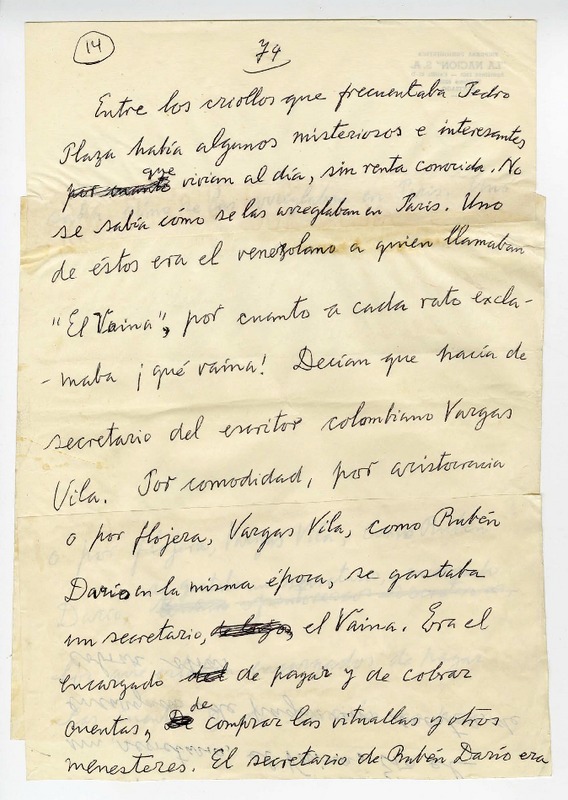 14
74
"LA NACION" S.A.
Entre los criollos que frecuentaba Pedro
Plaza había algunos misteriosos e interesantes
que vivian al día, sin renta conocida. No
se sabía cómo se las arreglaban en Paris. Uno
de éstos era el venezolano a quien llamaban
"El Vaina", por cuanto a cada rato excla-
-maba ¡qué vaina! Decían que hacía de
secretario del escritor colombiano Vargas
Vila. Por comodidad, por aristocracia
o por flojera, Vargas Vila, como Rubén
Darío en la misma época, se gastaba
un secretario, el Vaina. Era el
encargado de pagar y de cobrar
cuentas, de comprar las vituallas y otros
menesteres. El secretario de Rubén Darío era